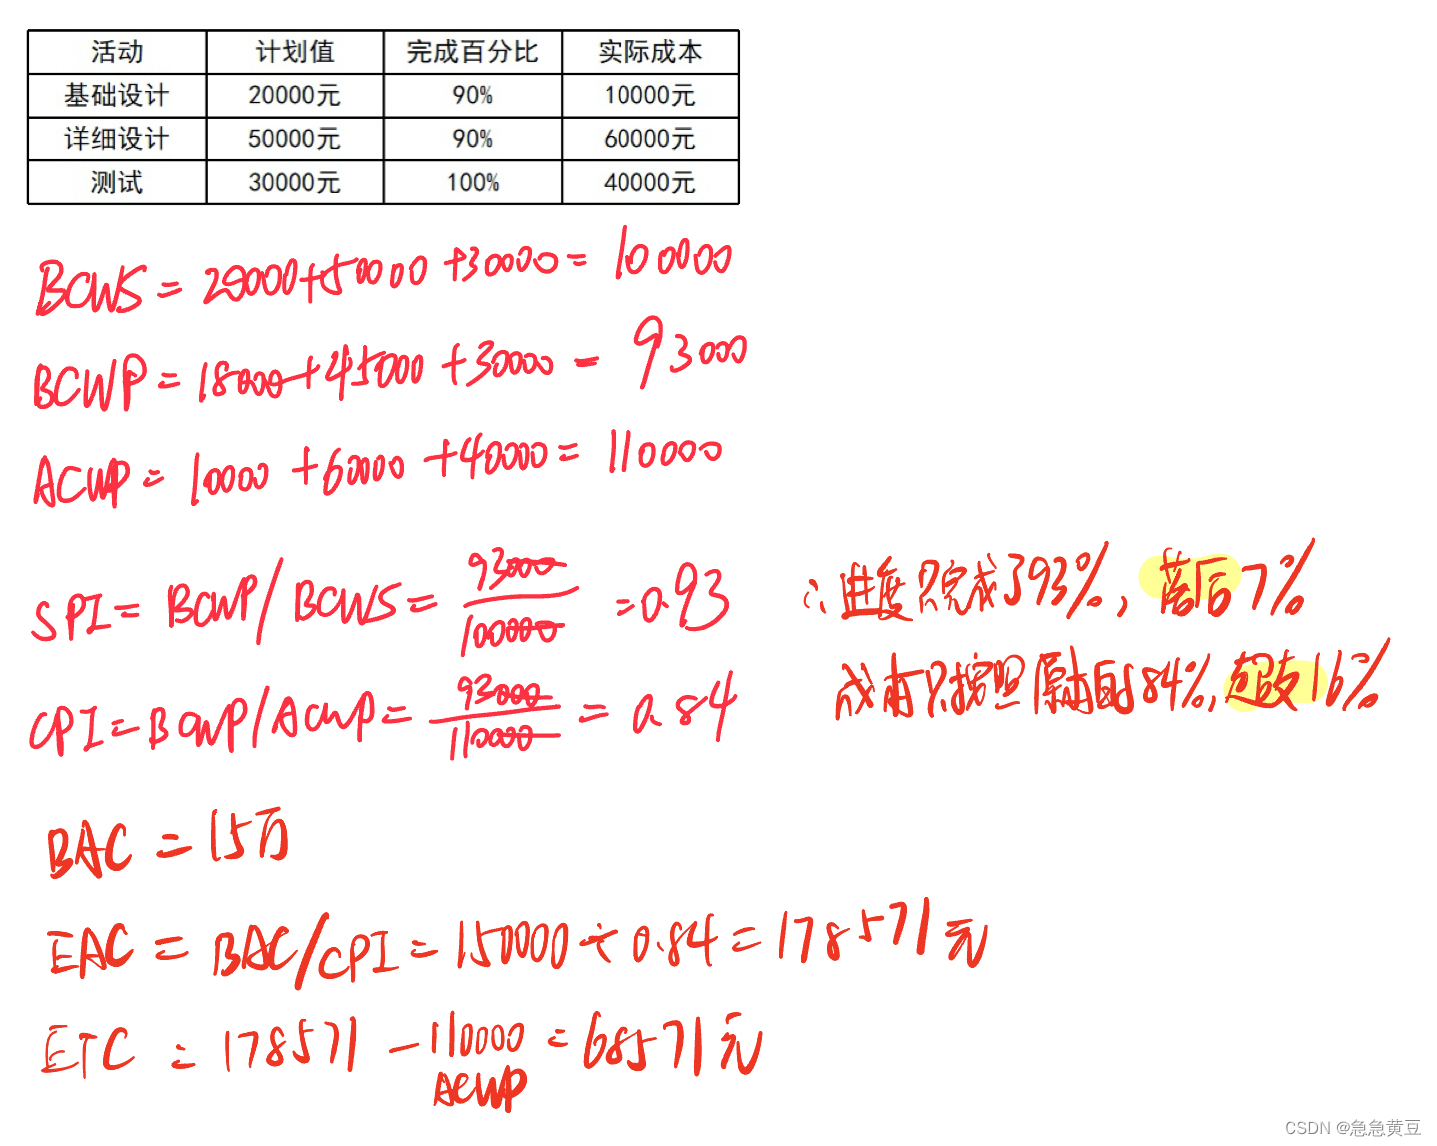 活动 计划值 完成百分比 实际成本
基础设计 20000元 90% 10000元
详细设计 50000元 90% 60000元
测试 30000元 100% 40000元
BCWS = 20000+50000+30000= 100000
BCWP = 18000+45000+30000 = 93000
ACWP = 10000+60000+40000= 110000
SPI= BCWP/BCWS= 93000/100000 =0.93 ∴进度只完成了93%, 落后7%
CPI=BCWP/ACWP= 93000/110000 = 0.84 成本只按照原本的84%, 超支16%
BAC = 15万
EAC = BAC/CPI=150000÷0.84=178571元
ETC = 178571 -110000 =68571元
ACWP
CSDN @急急黄豆